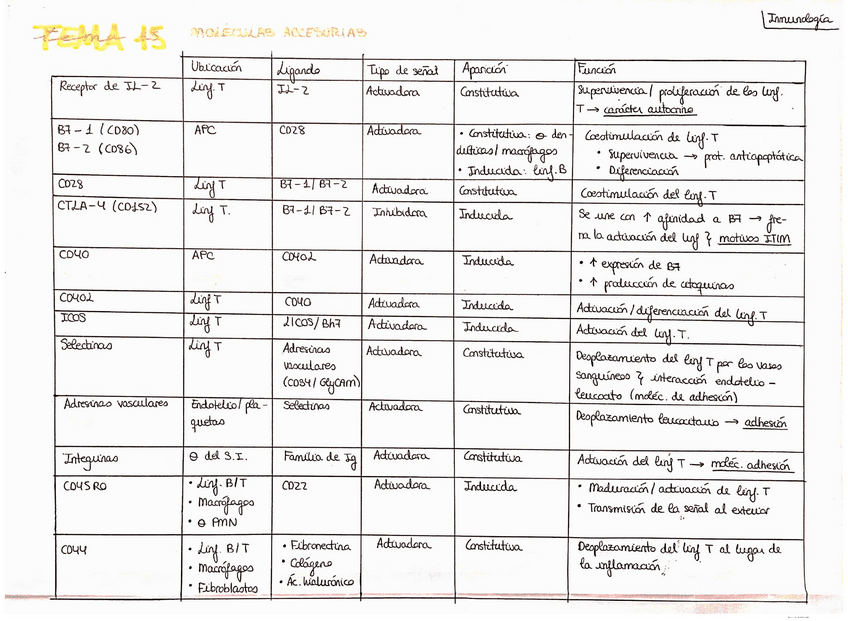 Inmunología
TEMA 15 MOLÉCULAS ACCESORIAS
Ubicación Ligando Tipo de señal Aparición Función
Receptor de IL-2 Linf. T IL-2 Activadora Constitutiva Supervivencia / proliferación de los linf.
T → carácter autocrino
B7-1 (CD80) APC CD28 Activadora • Constitutiva: ϴ den- Coestimulación de linf. T
B7-2 (CD86) dríticas / macrófagos • Supervivencia → prot. antiapoptótica
• Inducida: linf. B • Diferenciación
CD28 Linf T B7-1 / B7-2 Activadora Constitutiva Coestimulación del linf. T
CTLA-4 (CD152) Linf T. B7-1 / B7-2 Inhibidora Inducida Se une con ↑ afinidad a B7 → fre-
na la activación del linf } motivos ITIM
CD40 APC CD40L Activadora Inducida • ↑ expresión de B7
• ↑ producción de citoquinas
CD40L Linf T CD40 Activadora Inducida Activación / diferenciación del linf. T
ICOS Linf T LICOS / Bh7 Activadora Inducida Activación del linf. T.
Selectinas Linf T Adresinas Activadora Constitutiva Desplazamiento del linf T por los vasos
vasculares sanguíneos } interacción endotelio-
(CD34 / GlyCAM) leucocito (moléc. de adhesión)
Adresinas vasculares Endotelio / pla- Selectinas Activadora Constitutiva Desplazamiento leucocitario → adhesión
quetas
Integrinas ϴ del S.I. Familia de Ig Activadora Constitutiva Activación del linf T → moléc. adhesión
CD45RO • Linf. B/T CD22 Activadora Inducida • Maduración / activación de linf. T
• Macrófagos • Transmisión de la señal al exterior
• ϴ PMN
CD44 • Linf. B/T • Fibronectina Activadora Constitutiva Desplazamiento del linf T al lugar de
• Macrófagos • Colágeno la inflamación
• Fibroblastos • Ác. hialurónico